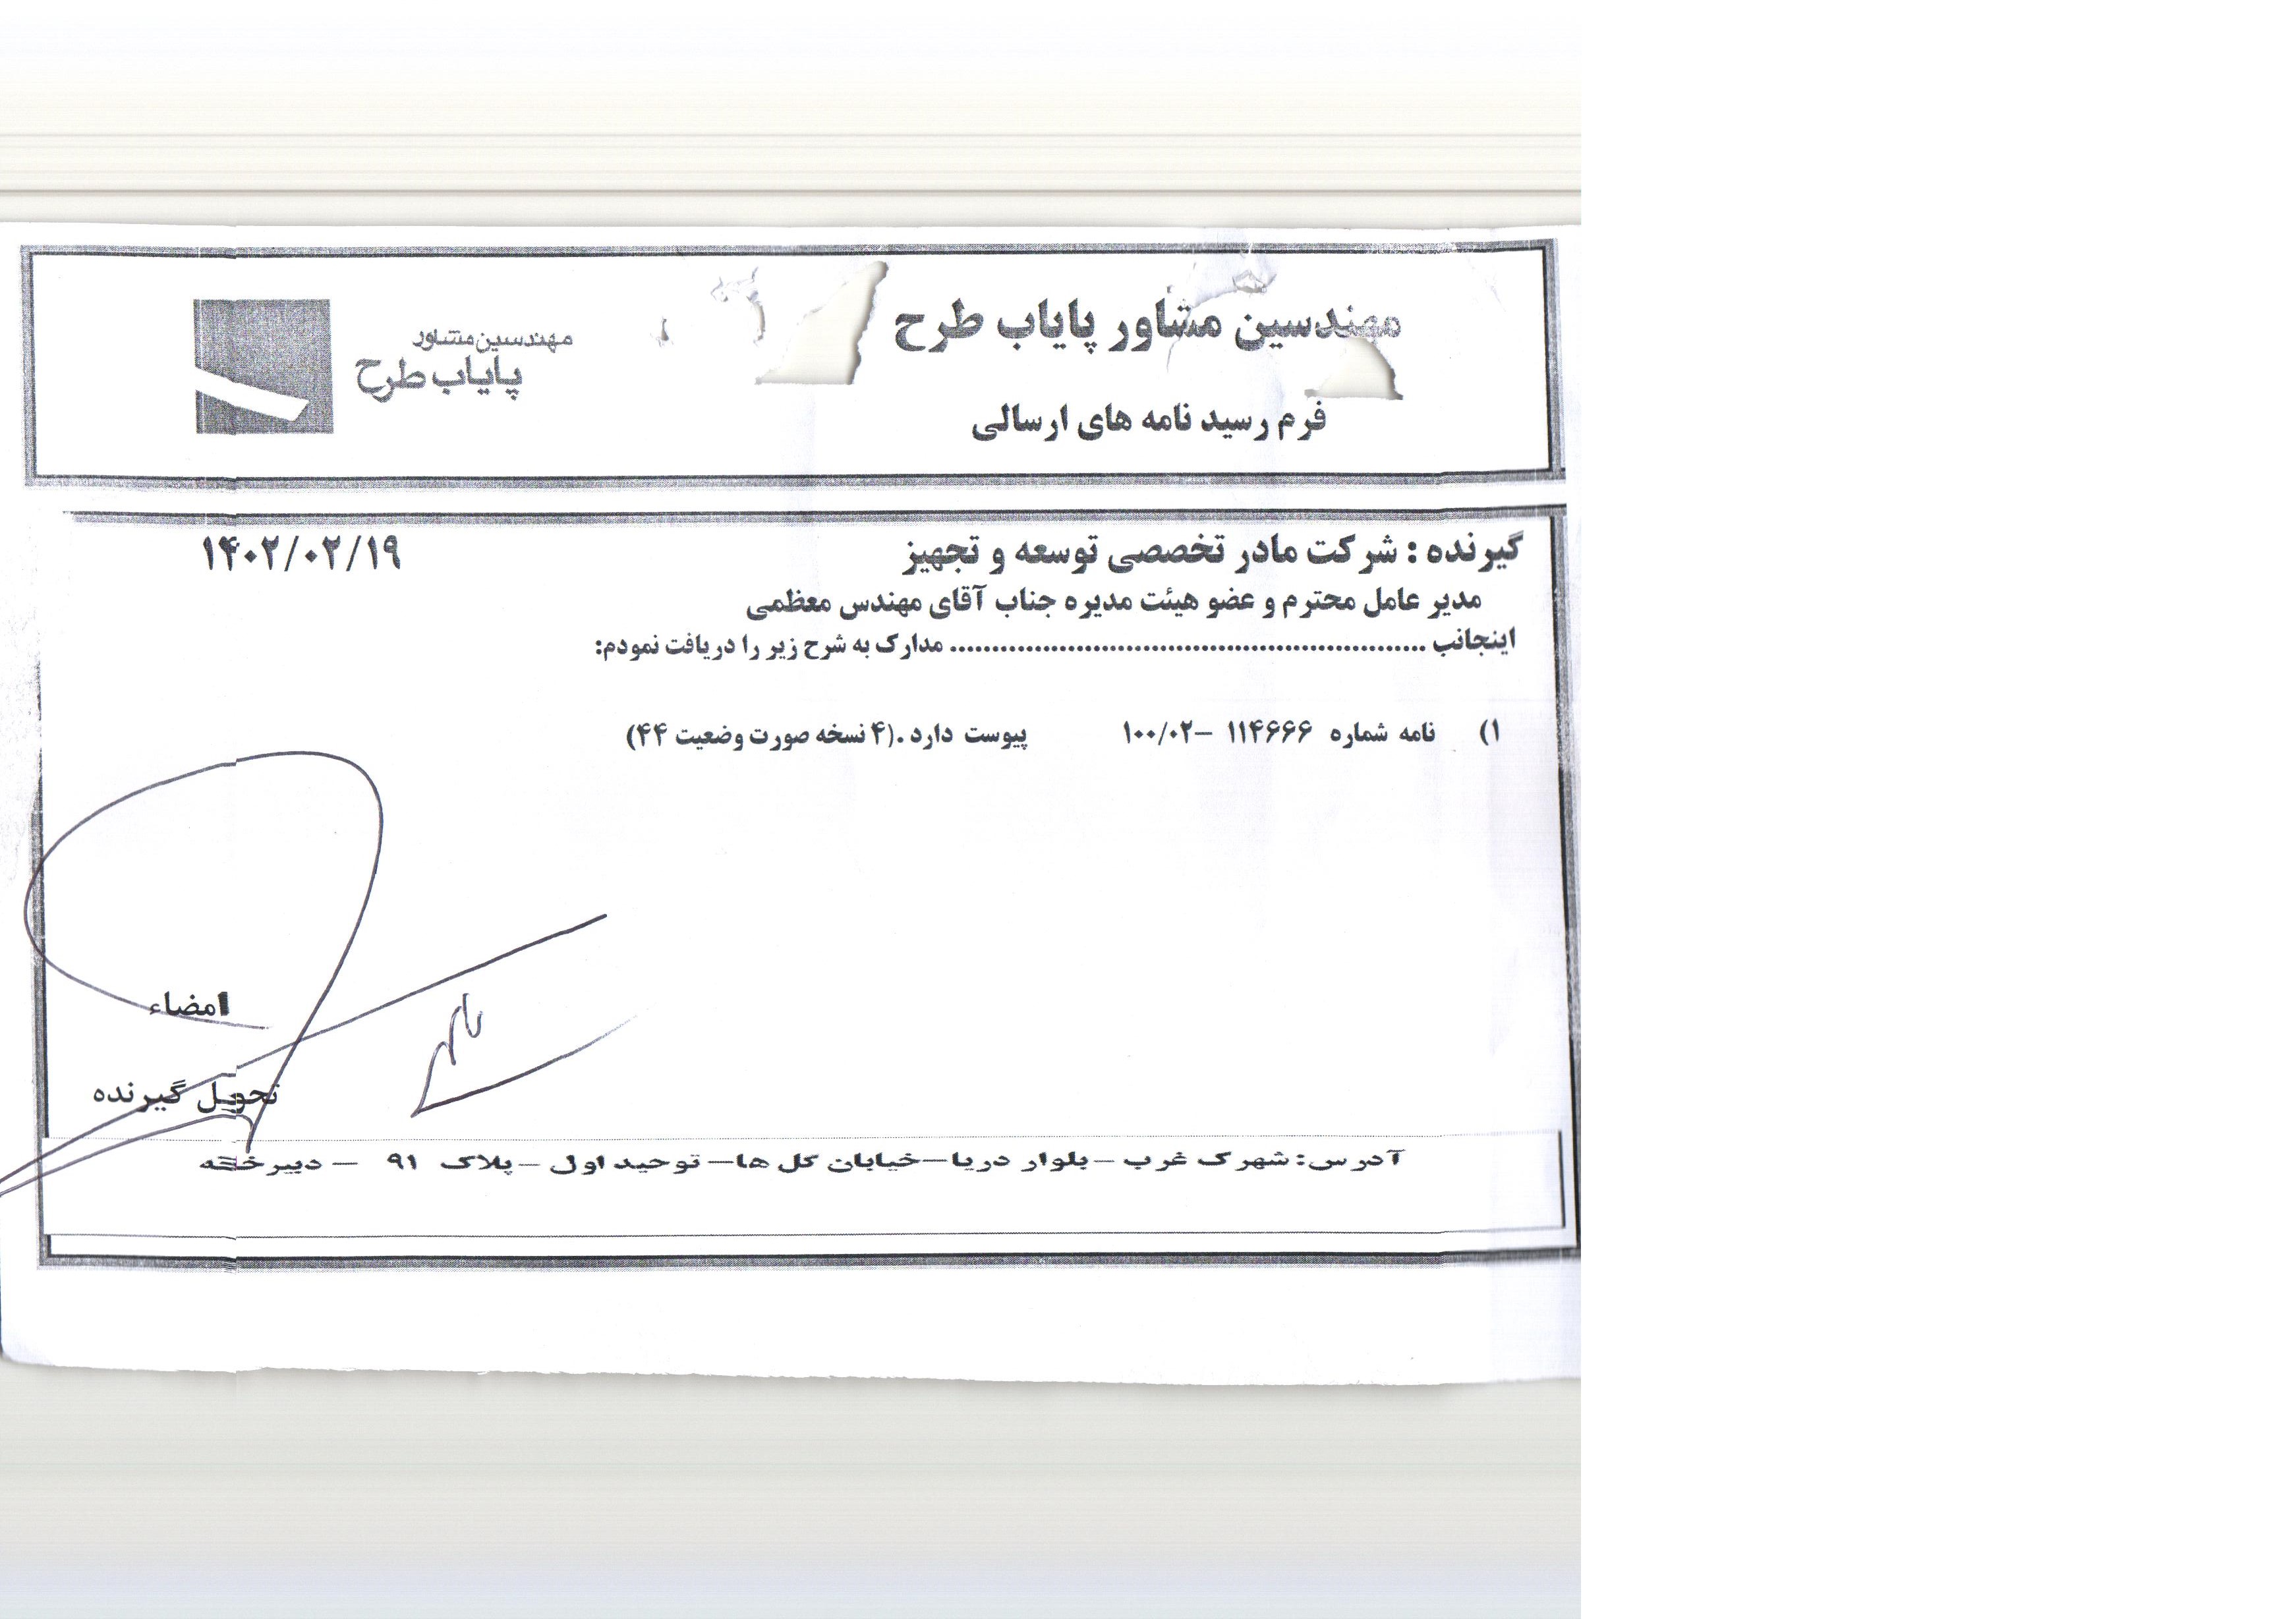 مهندسین مشاور پایاب طرح
فرم رسید نامه های ارسالی
مهندسین مشاور
پایاب طرح
گیرنده : شرکت مادر تخصصی توسعه و تجهیز
۱۴۰۲/۰۲/۱۹
مدیر عامل محترم و عضو هیئت مدیره جناب آقای مهندس معظمی
اینجانب ........................................................ مدارک به شرح زیر را دریافت نمودم:
۱) نامه شماره ۱۱۴۶۶۶ –۱۰۰/۰۲ پیوست دارد.(۴ نسخه صورت وضعیت ۴۴)
امضاء
تحویل گیرنده
آدرس: شهرک غرب – بلوار دریا– خیابان گل ها– توحید اول – پلاک ۹۱ –